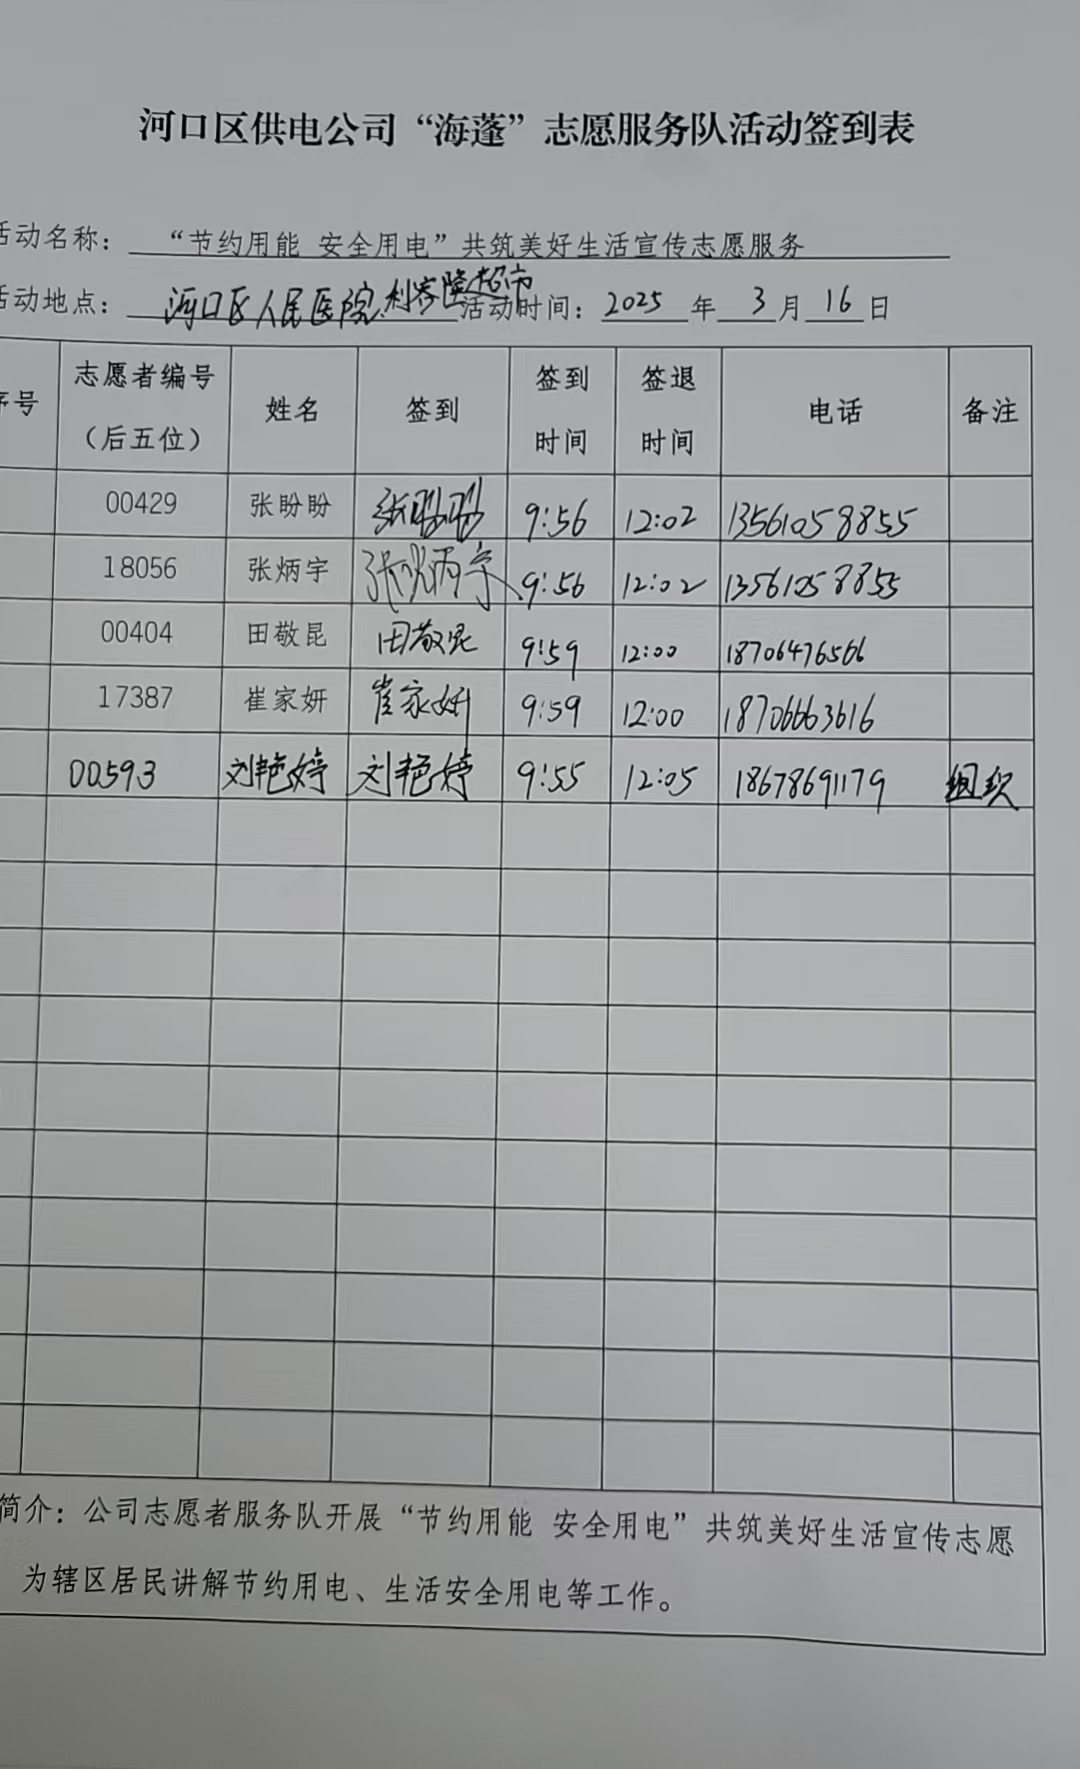 河口区供电公司“海蓬”志愿服务队活动签到表
活动名称：“节约用能 安全用电”共筑美好生活宣传志愿服务
活动地点：河口区人民医院.利客隆超市 活动时间：2025年3月16日
序号 志愿者编号（后五位） 姓名 签到 签到时间 签退时间 电话 备注
00429 张盼盼 张盼盼 9:56 12:02 13561058855
18056 张炳宇 张炳宇 9:56 12:02 13561058855
00404 田敬昆 田敬昆 9:59 12:00 18706476566
17387 崔家妍 崔家妍 9:59 12:00 18706663616
00593 刘艳婷 刘艳婷 9:55 12:05 18678691179 组织
简介：公司志愿者服务队开展“节约用能 安全用电”共筑美好生活宣传志愿
为辖区居民讲解节约用电、生活安全用电等工作。